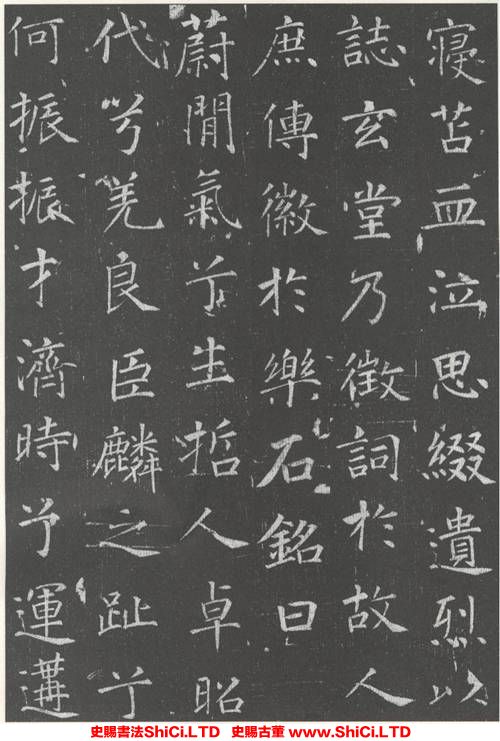 寢苫血泣思綴遺烈以
誌玄堂乃徵詞於故人
庶傳徽於樂石銘曰
蔚閒氣兮生哲人卓昭
代兮羌良臣麟之趾兮
何振振才濟時兮運遘
史賜書法ShiCi.LTD 史賜古董 www.ShiCi.LTD